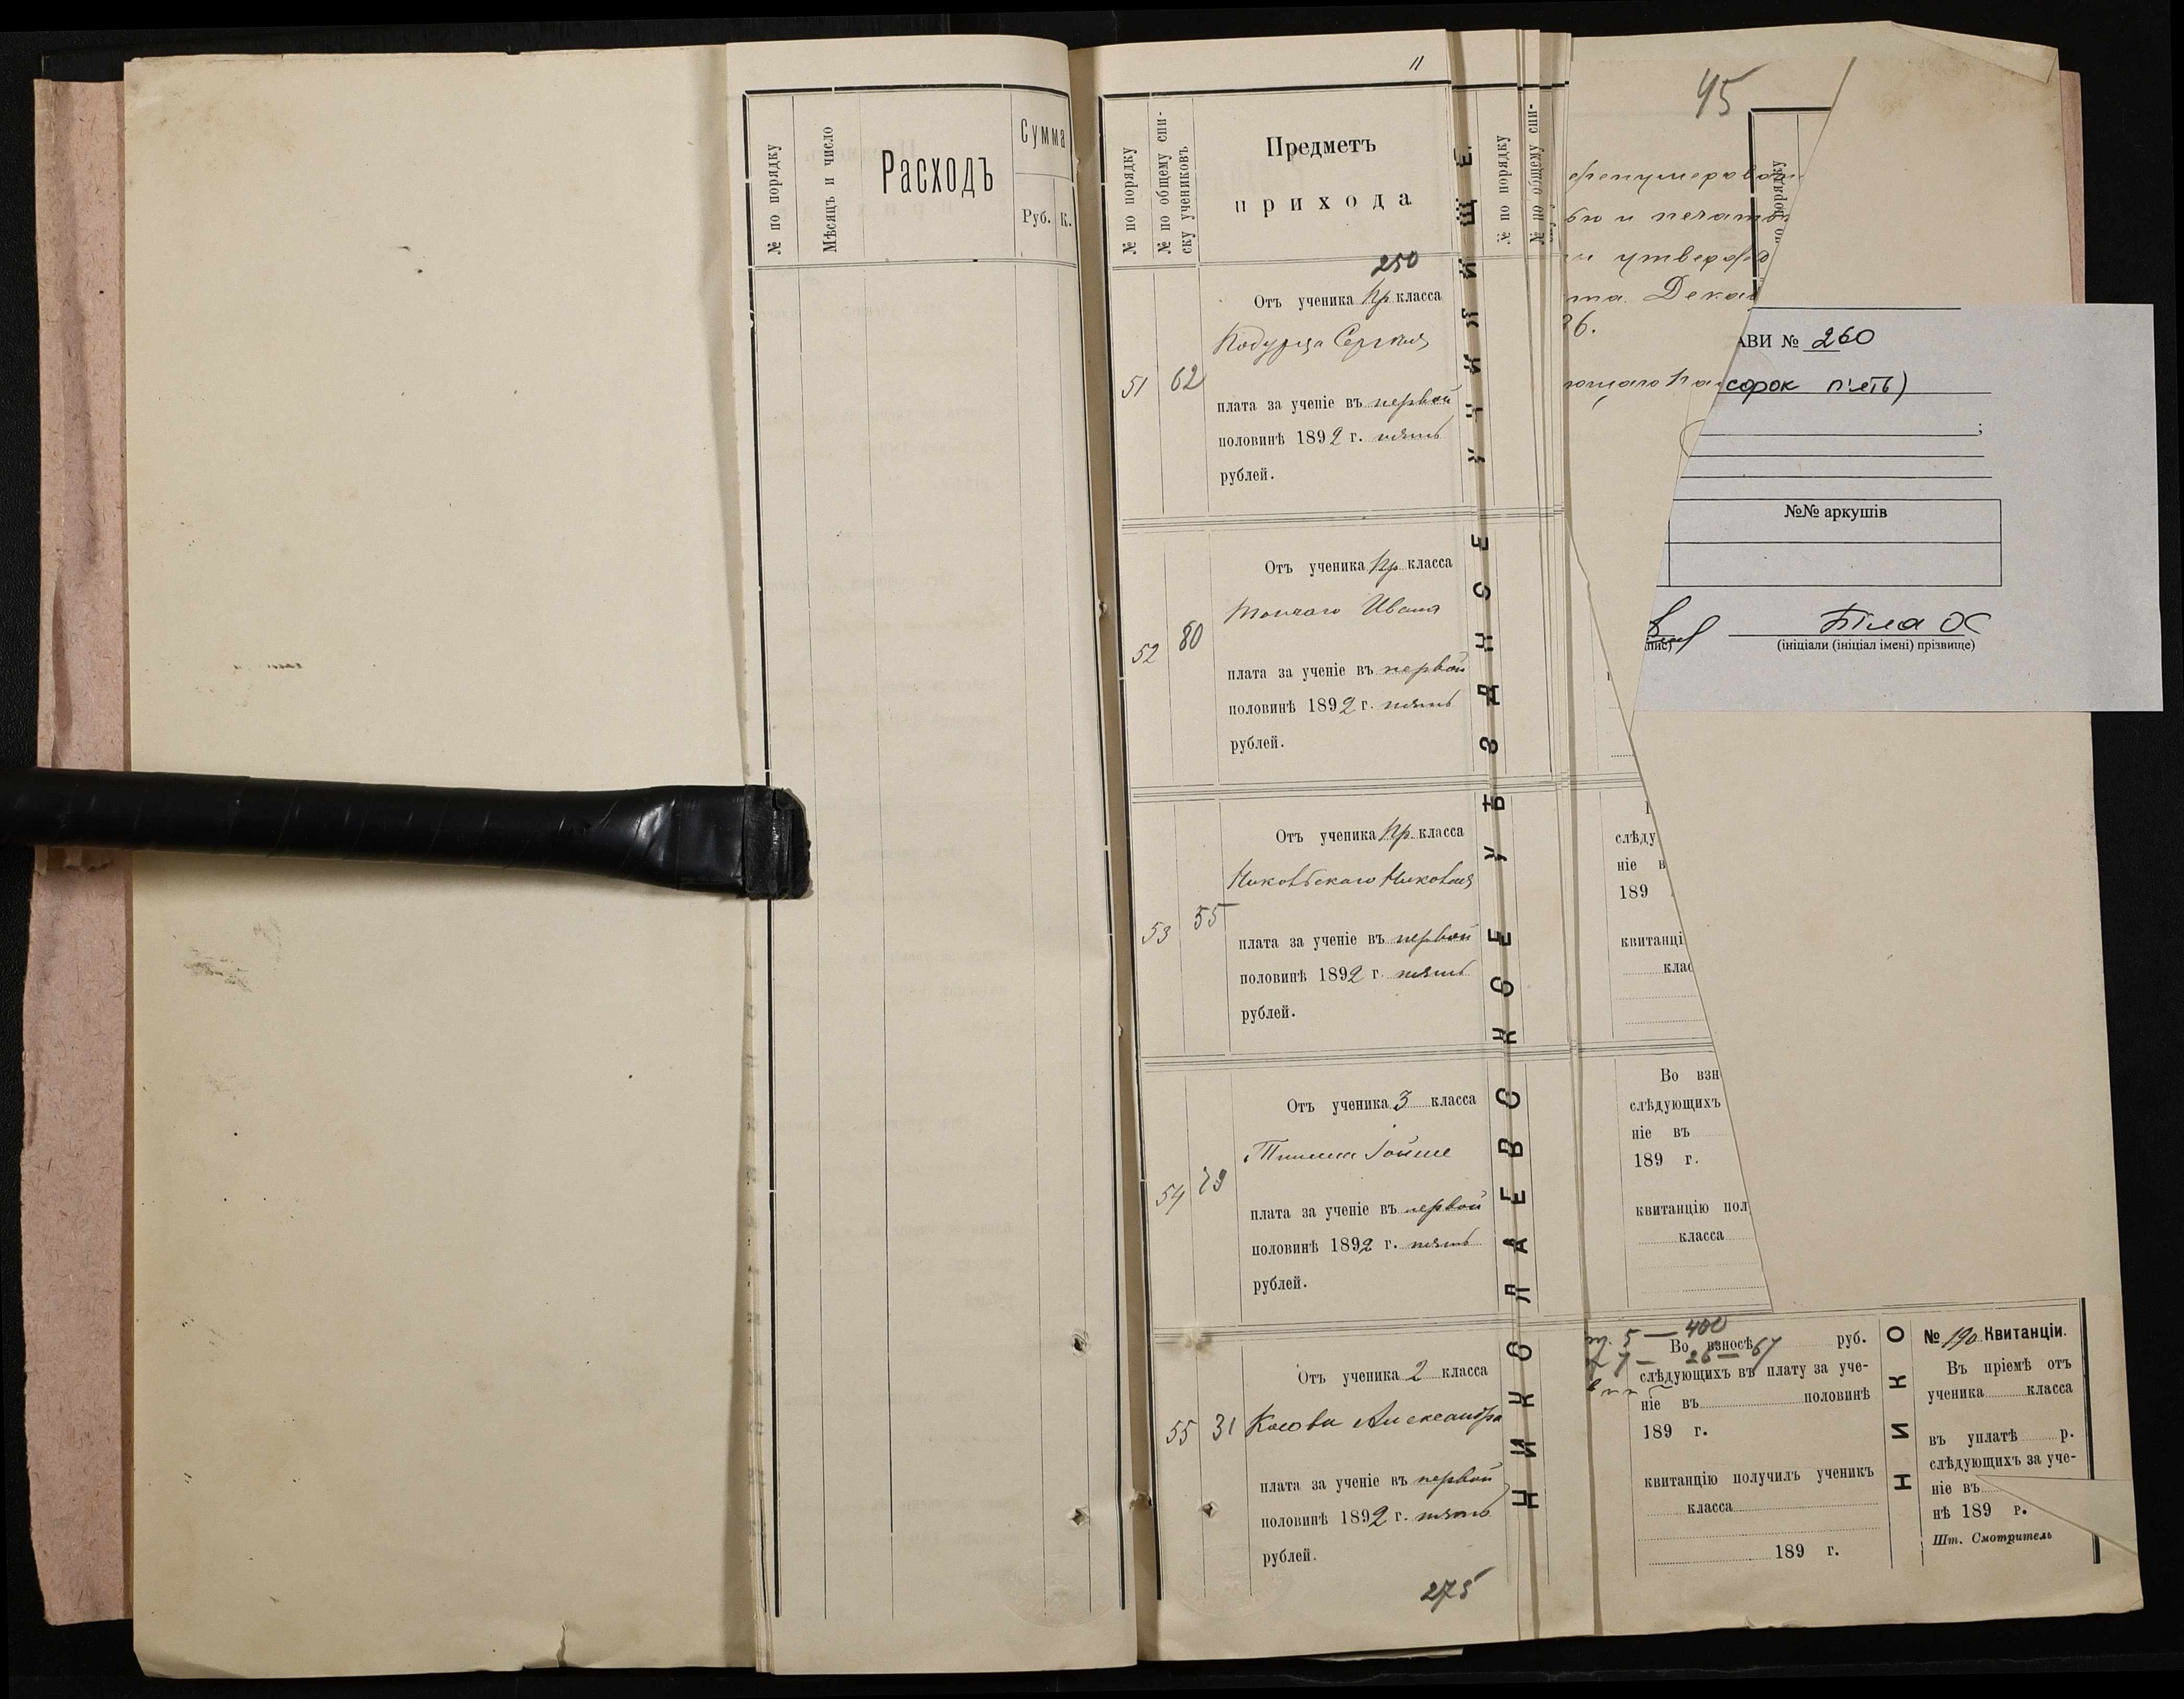 № по порядку
Мѣсяцъ и число
Расходъ
Сумма
Руб.
К.
11
№ по порядку
№ по общему спи-
ску учениковъ
Предметъ
прихода
250
51
62
Отъ ученика Пр класса
плата за ученіе въ первой
половинѣ 1892 г. пять
рублей.
52
80
Отъ ученика Пр. класса
Ивана
плата за ученіе въ первой
половинѣ 1892 г. пять
рублей.
53
55
Отъ ученика Пр. класса
Николая
плата за ученіе въ первой
половинѣ 1892 г. пять
рублей.
54
Отъ ученика 3 класса
плата за ученіе въ первой
половинѣ 1892 г. пять
рублей.
55
31
Отъ ученика 2 класса
Александра
плата за ученіе въ первой
половинѣ 1892 г. пять
рублей.
275
НИКОЛАЕВСКОЕ УѢЗДНОЕ УЧИЛИЩЕ.
№ по порядку
№ по общему спи-
45
по порядку
и печать
утверж
та. Декаб
26.
АВИ № 260
сорок п'ять)
;
№№ аркушів
Біла О
(ініціали (ініціал імені) прізвище)
слѣду
ніе в
189
квитанці
клас
Во взн
слѣдующихъ
ніе въ
189 г.
квитанцію пол
класса
400
Во взносѣ руб.
26 — 67
слѣдующихъ въ плату за уче-
ніе въ половинѣ
189 г.
квитанцію получилъ ученикъ
класса
189 г.
НИКО
№ 190 Квитанціи.
Въ пріемѣ отъ
ученика класса
въ уплатѣ р.
слѣдующихъ за уче-
ніе въ
нѣ 189 г.
Шт. Смотритель